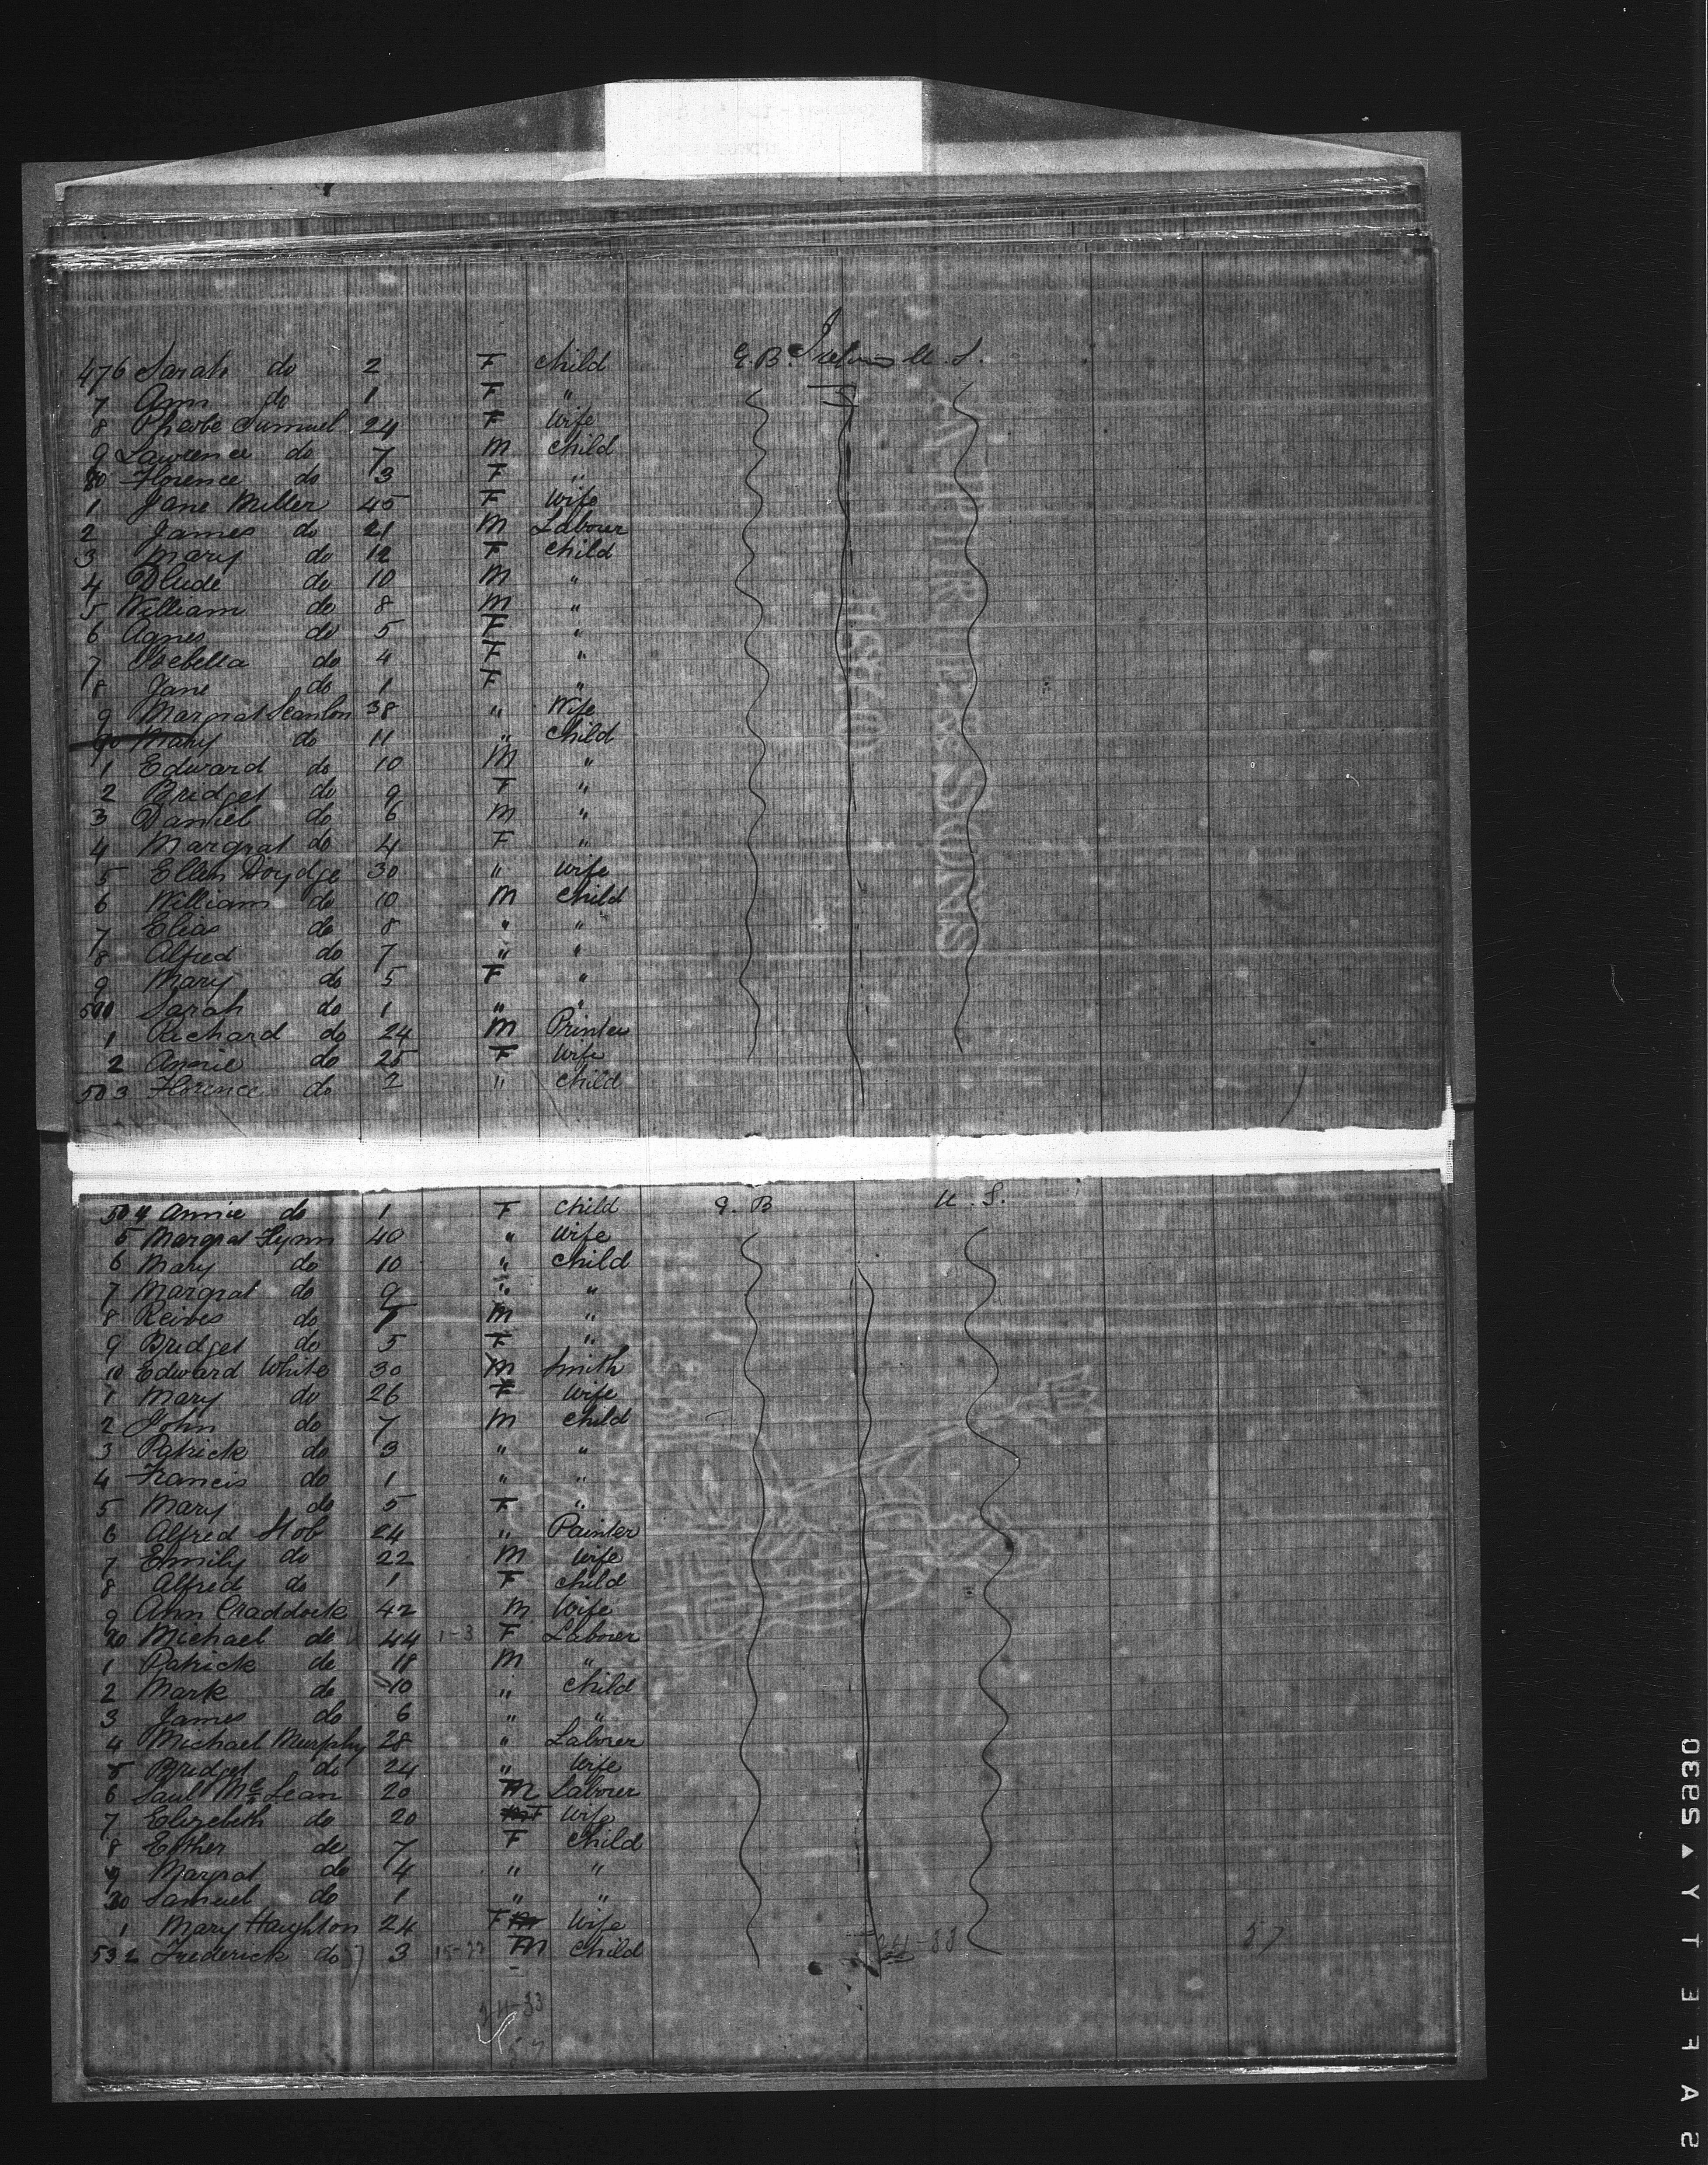 476 Sarah do 2 F Child G.B. U.S.
7 Ann do 1 F "
8 Pheobe 24 F Wife
9 Lawrence do 7 M Child
80 Florence do 3 F "
1 Jane Miller 45 F Wife
2 James do 21 M Labourer
3 Mary do 12 F Child
4 do 10 M "
5 William do 8 M "
6 Agnes do 5 F "
7 Isebella do 4 F "
8 Jane do 1 F "
9 Margrat Scanlon 38 " Wife
90 Mary do 11 " Child
1 Edward do 10 M "
2 Bridget do 9 F "
3 Daniel do 6 M "
4 Margrat do 4 F "
5 Ellen Doydge 30 " Wife
6 William do 10 M Child
7 Elias do 8 " "
8 Alfred do 7 " "
9 Mary do 5 F "
500 Sarah do 1 " "
1 Richard do 24 M Printer
2 Annie do 25 F Wife
503 Florence do 2 " Child
504 Annie do 1 F Child G.B U.S.
5 Margrat Flynn 40 " Wife
6 Mary do 10 " Child
7 Margrat do 9 " "
8 do M "
9 Bridget do 5 F "
10 Edward White 30 M Smith
1 Mary do 26 F Wife
2 John do 7 M Child
3 Patrick do 3 " "
4 Francis do 1 " "
5 Mary do 5 F "
6 Alfred Stob 24 " Painter
7 Emily do 22 M Wife
8 Alfred do 1 F Child
9 Ann Craddock 42 M Wife
20 Michael do 44 1-3 F Laborer
1 Patrick do 18 M "
2 Mark do 10 " Child
3 James do 6 " "
4 Michael Murphy 28 " Laborer
5 Bridget do 24 " Wife
6 Saul McLean 20 M Laborer
7 Elizebeth do 20 F Wife
8 Esther do 7 F Child
9 Margrat do 4 " "
30 Samuel do 1 " "
1 Mary Haughton 24 F Wife
532 Frederick do 3 M Child 57
0385 ▲ Y T E F A S